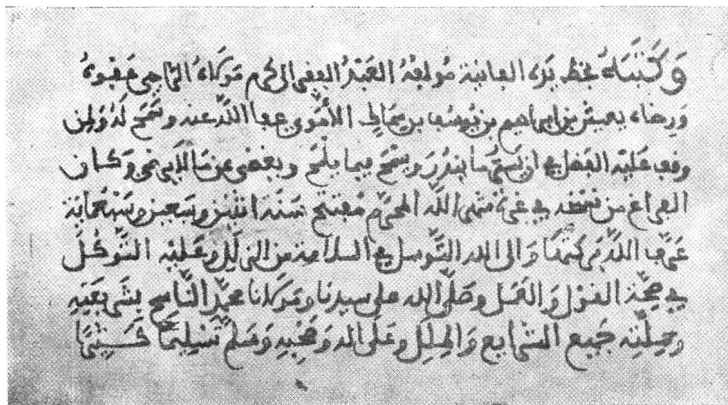 وكتبه بخط يده الفانية مؤلفه العبد الفقير الى كرم مولاه الراجي عفوه
ورضاه يعيش بن ابراهيم بن يوسف بن سماك الاموي عفا الله عنه وسمح له ولمن
وقف عليه الفضل في ان يستر ما يندر ويسمح فيما يلمح ويغضى عن وكان
الفراغ من نسخه في غرة شهر الله المحرم مفتتح سنة اثنين وسبعين وسبعمائة
عرف الله بركتها والى الله التوسل في السلامة من الزلل وعليه التوكل
في صحة القول والعمل وصلى الله على سيدنا ومولانا محمد الناسخ بشريعته
وملته جميع الشرايع والملل وعلى اله وصحبه وسلم تسليما كثيرا